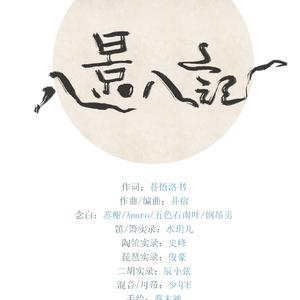 八景八记
作词：苍悟洛书
作曲/编曲：井宿
念白：苏榭/Amuro/五色石南叶/倒吊男
笛/箫实录：水玥儿
陶笛实录：史峰
琵琶实录：俊豪
二胡实录：辰小弦
混音/母带：少年E